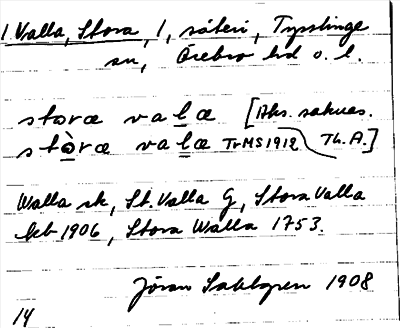 1 Valla, Stora, 1, säteri, Tysslinge
sn, Örebro hd o. l.
storæ valæ [Aks. saknas.
stòræ valæ TrMS 1912 Th. A.]
Walla sk, St. Valla G, Stora Valla
Jeb 1906, Stora Walla 1753.
Jöran Sahlgren 1908
14